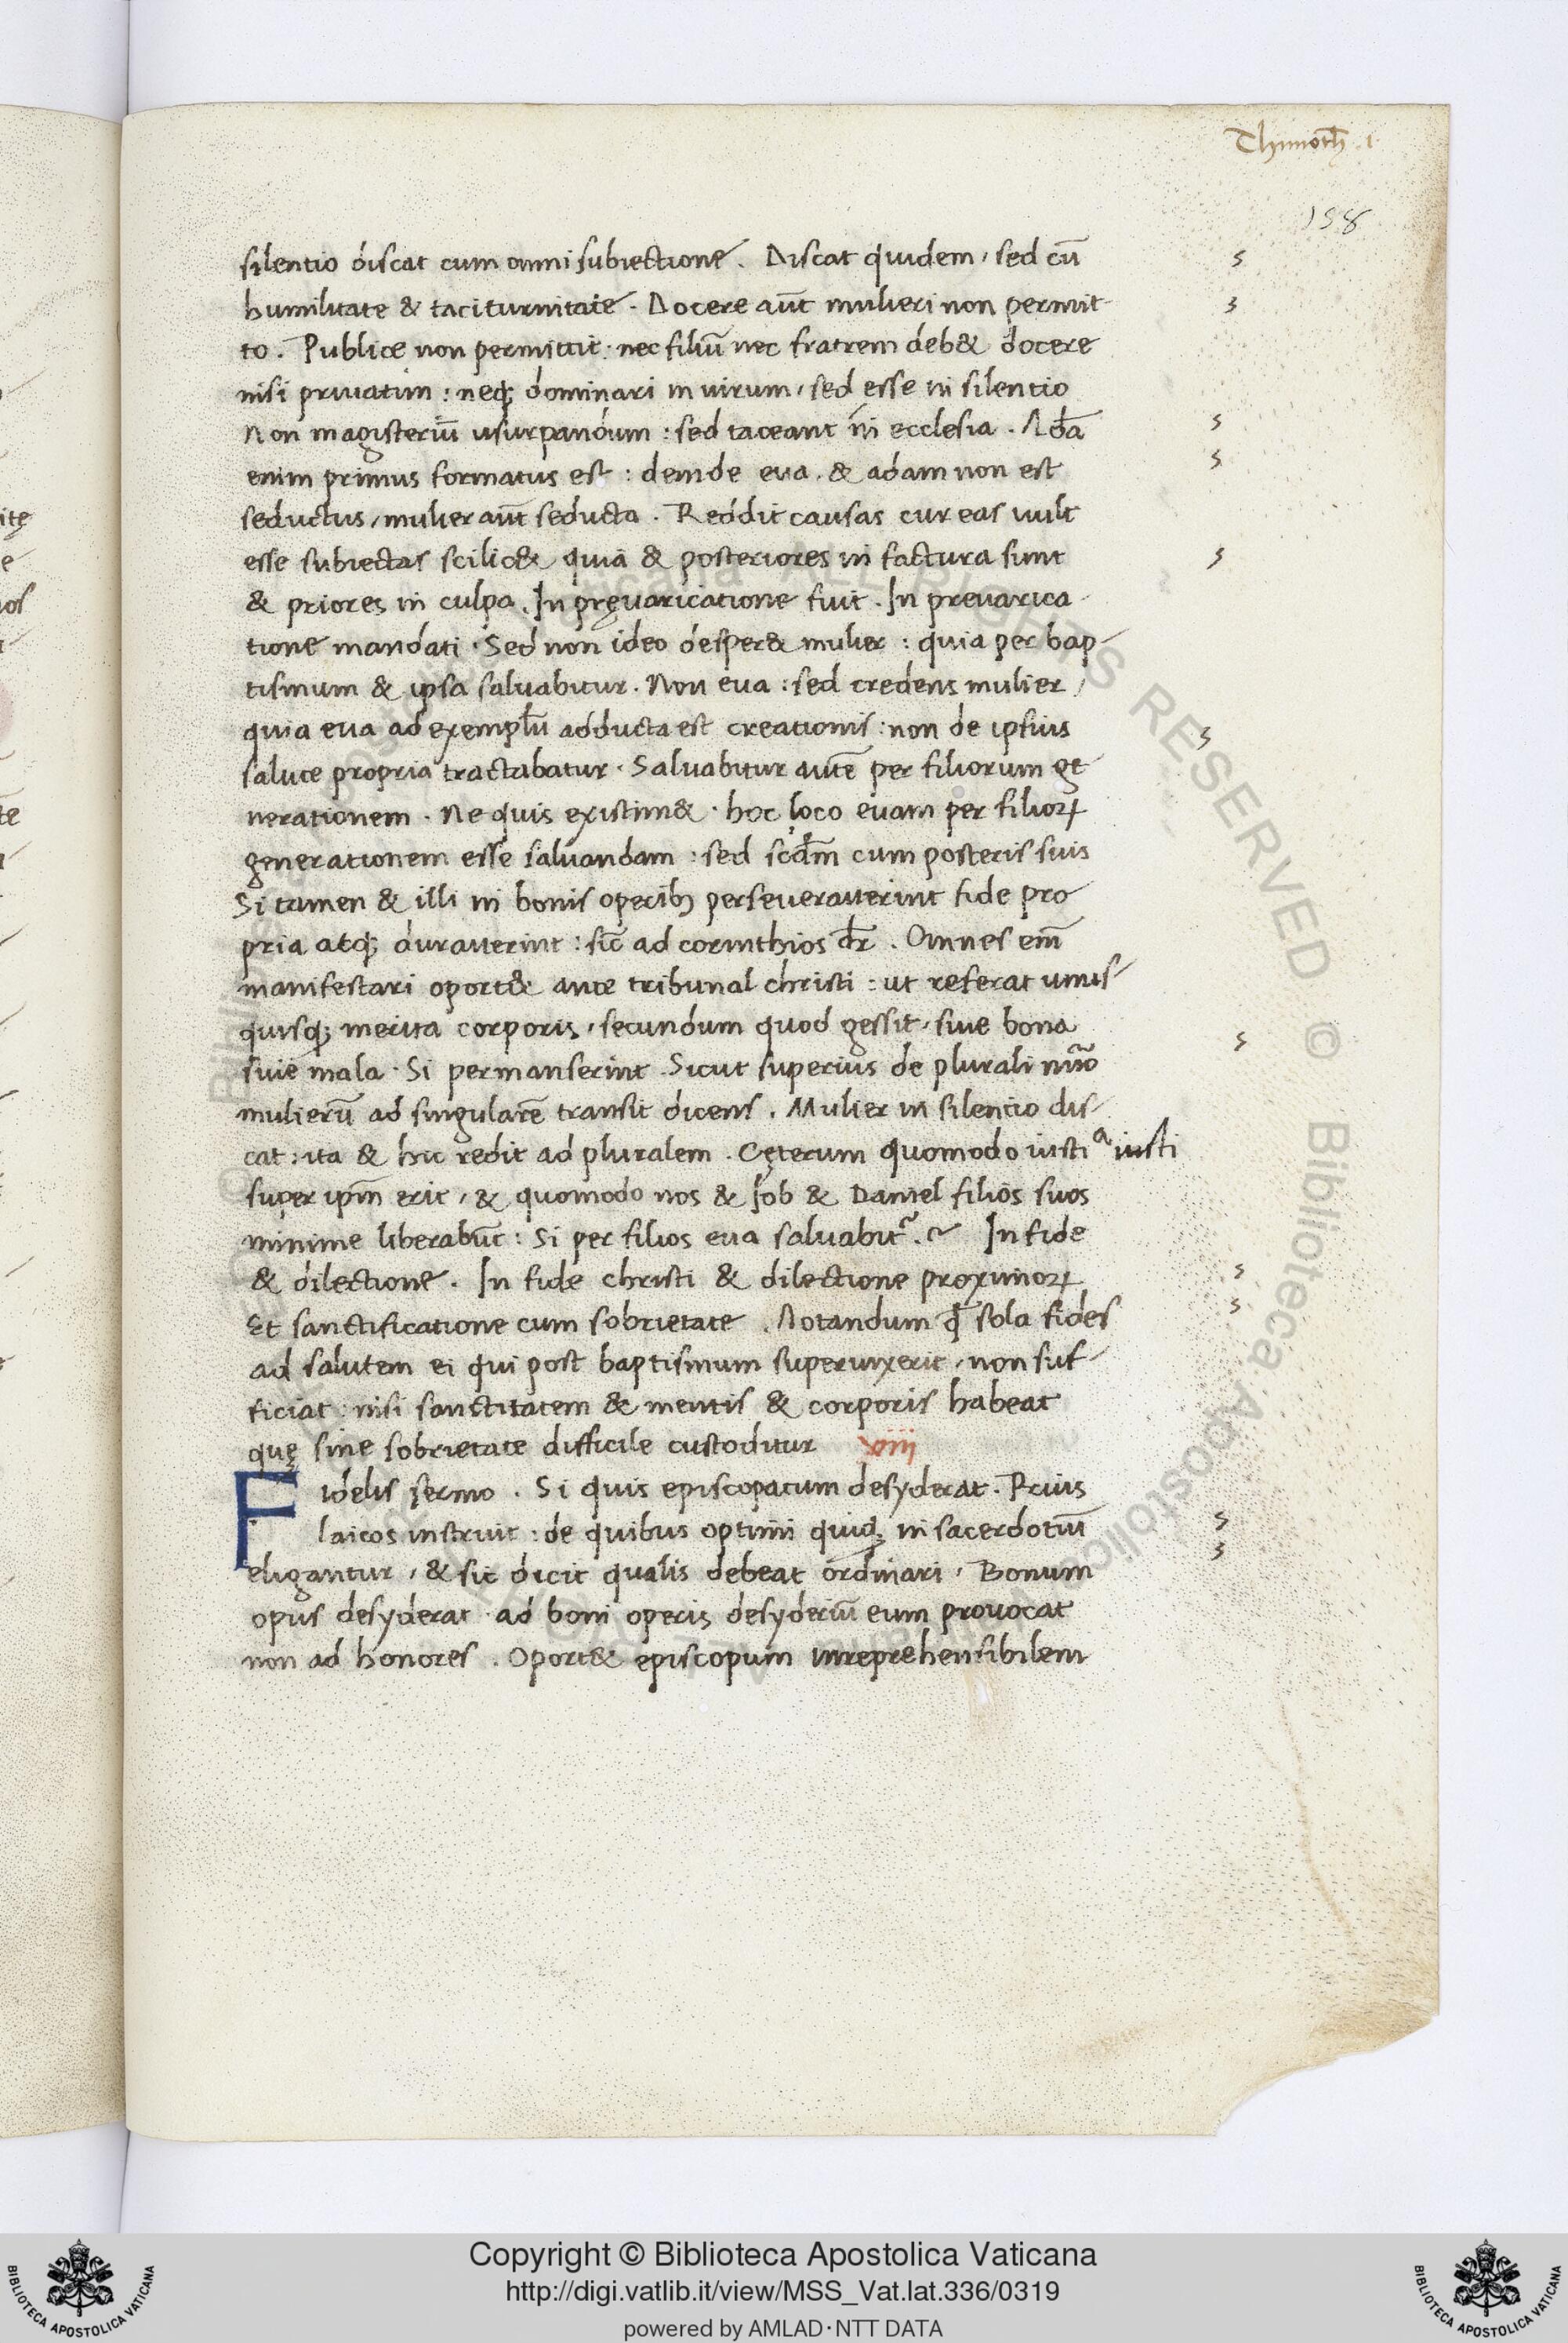 Thimoth̄ .1.
158
silentio discat cum omni subiectione. Discat quidem, sed cū
humilitate & taciturnitate. Docere aūt mulieri non permit
to. Publice non permittit: nec filiū nec fratrem deb& docere
nisi priuatim: neq; dominari in uirum, sed esse in silentio
Non magisteriū usurpandum: sed taceant in ecclesia. Adā
enim primus formatus est: deinde eua. & adam non est
seductus, mulier aūt seducta. Reddit causas cur eas uult
esse subiectas scilic& quia & posteriores in factura sunt
& priores in culpa. In pręuaricatione fuit. In preuarica
tione mandati. Sed non ideo desper& mulier: quia per bap-
tismum & ipsa saluabitur. Non eua: sed credens mulier,
quia eua ad exemplū adducta est creationis: non de ipsius
salute propria tractabatur. Saluabitur autē per filiorum ge
nerationem. Ne quis existim& hoc loco euam per filioꝝ
generationem esse saluandam: sed scdm̄ cum posteris suis
Si tamen & illi in bonis operib; perseuerauerint fide pro
pria atq; durauerint: sic̄ ad corinthios dr̄. Omnes em̄
manifestari oport& ante tribunal christi: ut referat unus
quisq; merita corporis, secundum quod gessit, siue bona
siue mala. Si permanserint. Sicut superius de plurali nūo
mulierū ad singularē transit dicens. Mulier in silentio dis-
cat: ita & hic redit ad pluralem. Cęterum quomodo iustiᵃ iusti
super ipm̄ erit, & quomodo nos & Job & Daniel filios suos
minime liberabūt: Si per filios eua saluabit᷑. In fide
& dilectione. In fide christi & dilectione proximoꝝ
Et sanctificatione cum sobrietate. Notandum ꝙ sola fides
ad salutem ei qui post baptismum superuixerit, non suf-
ficiat: nisi sanctitatem & mentis & corporis habeat
quę sine sobrietate difficile custoditur xiiii
Fidelis sermo. Si quis episcopatum desyderat. Prius
laicos instruit: de quibus optimi quiq; in sacerdotiū
eligantur, & sic dicit qualis debeat ordinari. Bonum
opus desyderat. ad boni operis desyderiū eum prouocat
non ad honores. Oport& episcopum inreprehensibilem
Copyright © Biblioteca Apostolica Vaticana
http://digi.vatlib.it/view/MSS_Vat.lat.336/0319
powered by AMLAD·NTT DATA